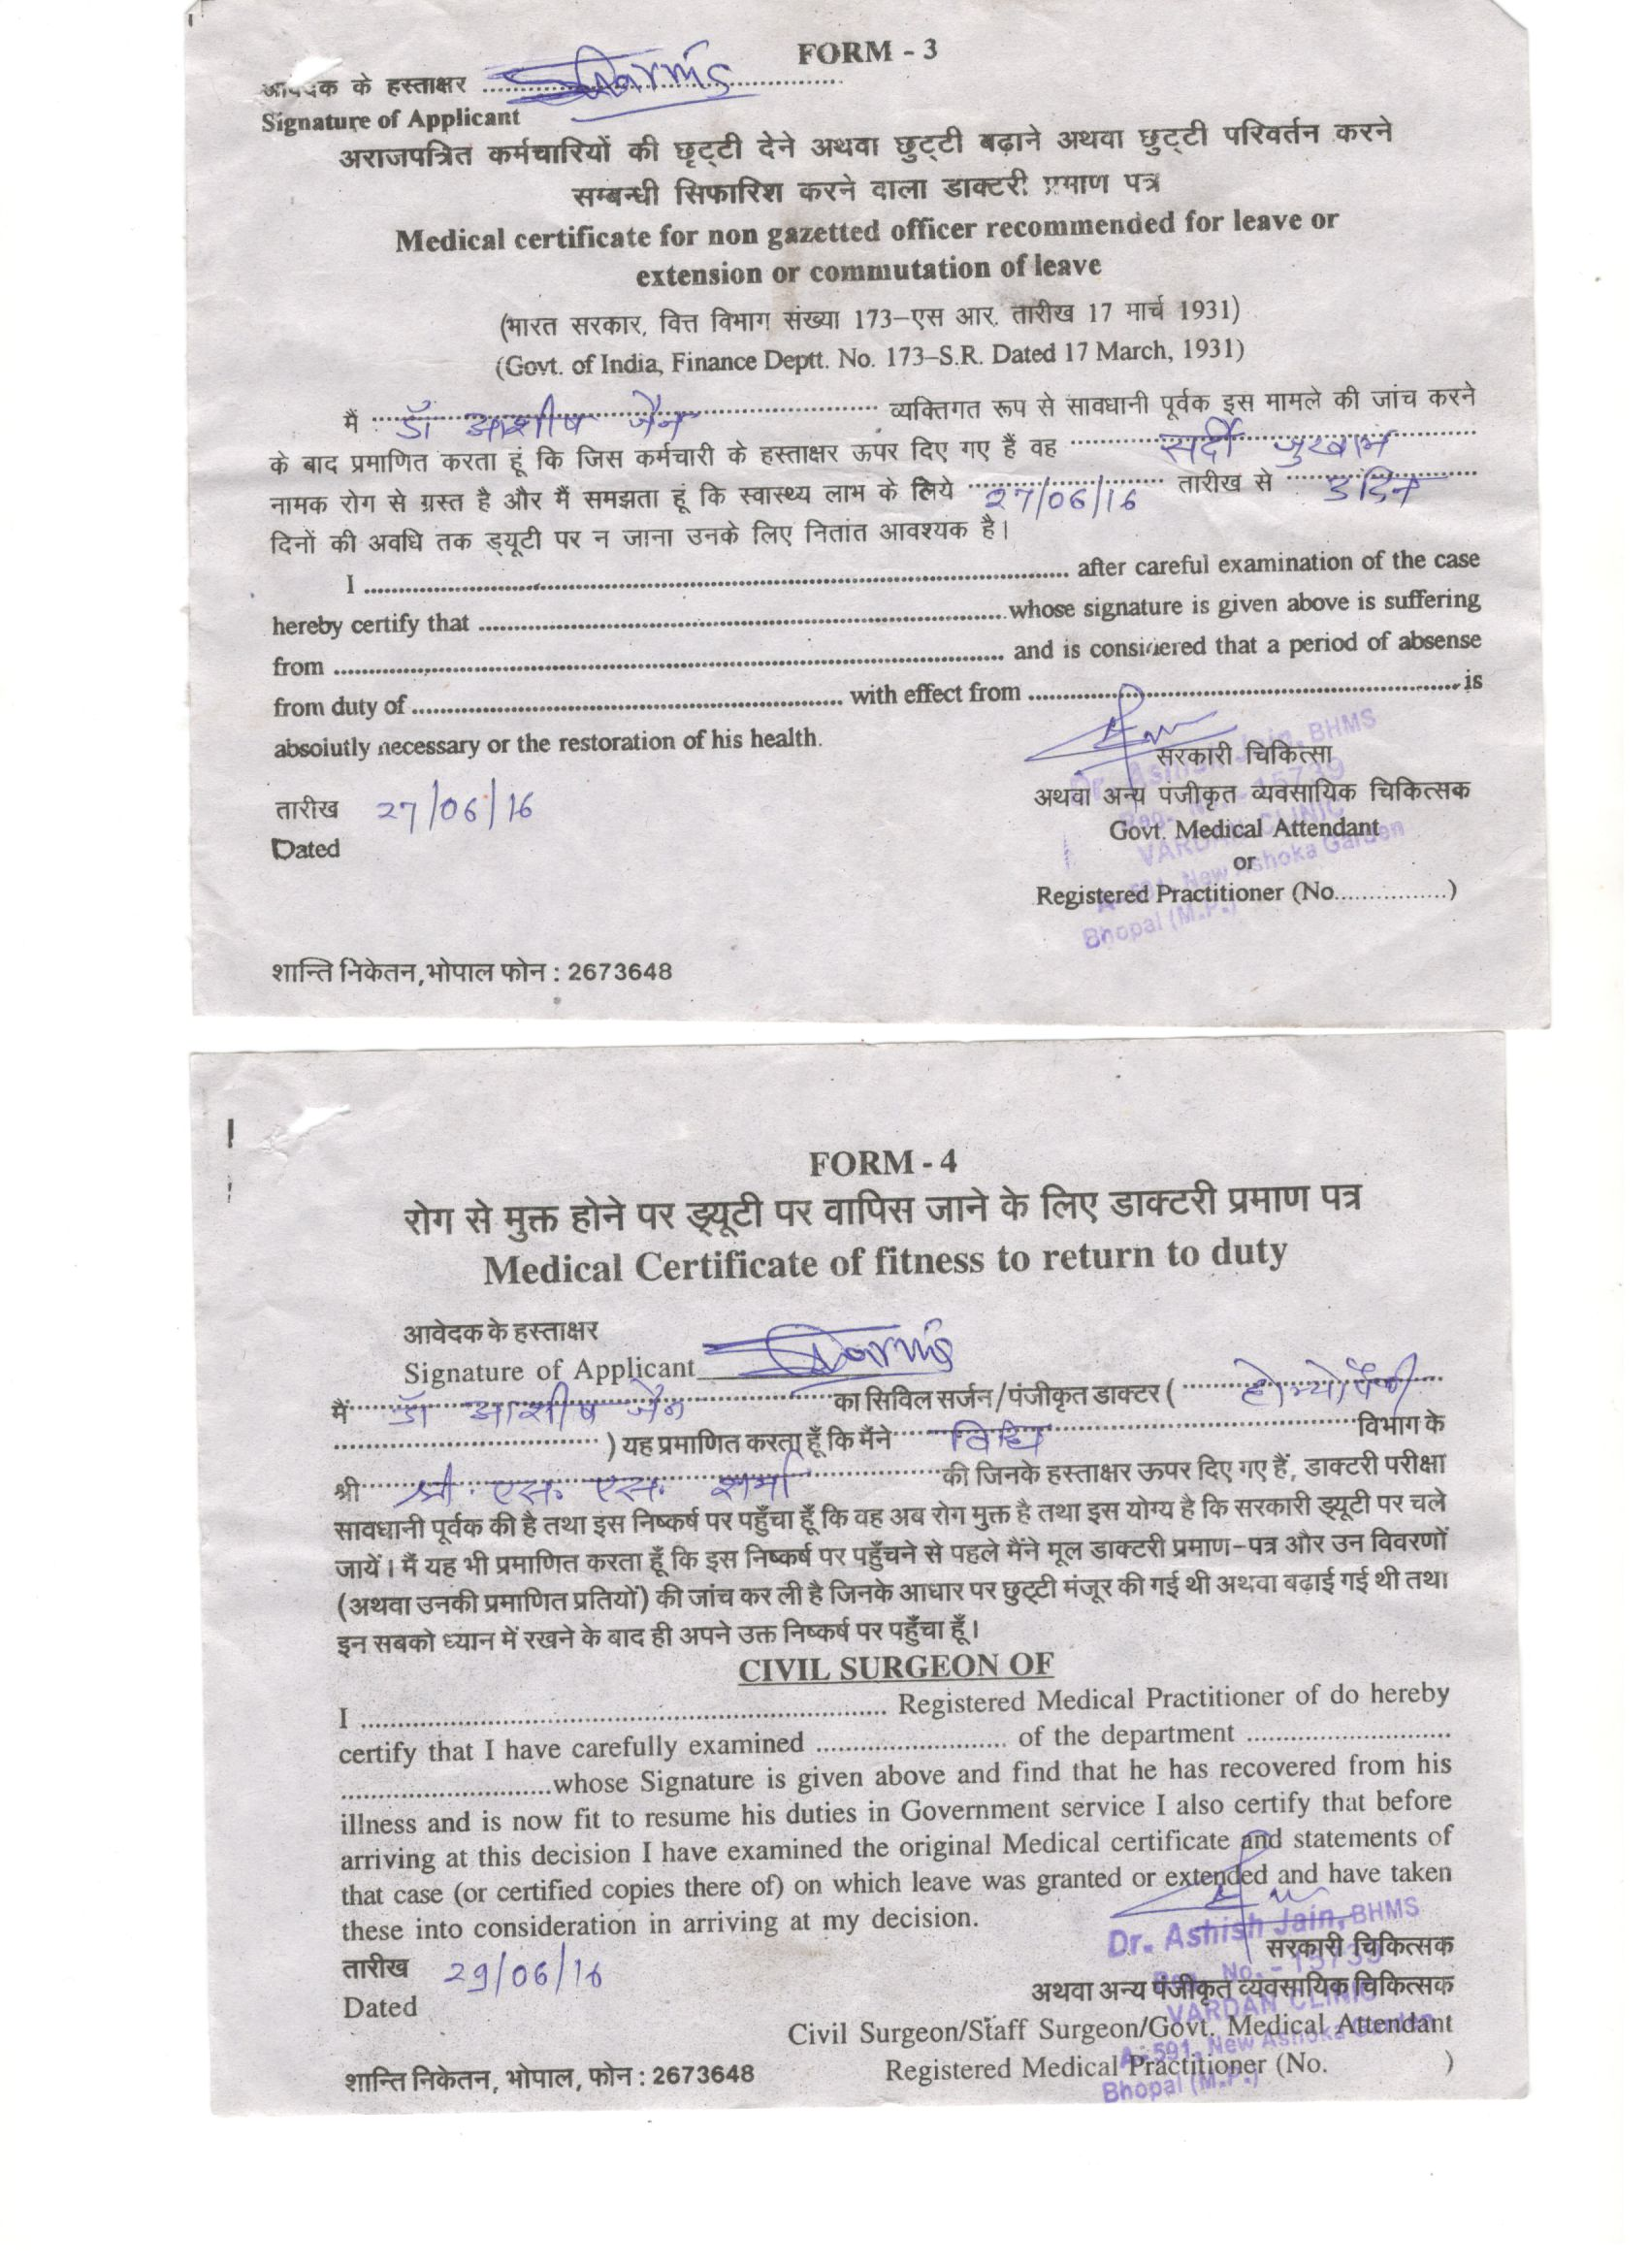 FORM - 3
आवेदक के हस्ताक्षर ........ Sharma
Signature of Applicant
अराजपत्रित कर्मचारियों की छृट्टी देने अथवा छुट्टी बढ़ाने अथवा छुट्टी परिवर्तन करने
सम्बन्धी सिफारिश करने वाला डाक्टरी प्रमाण पत्र
Medical certificate for non gazetted officer recommended for leave or
extension or commutation of leave
(भारत सरकार, वित्त विभाग संख्या 173–एस आर. तारीख 17 मार्च 1931)
(Govt. of India, Finance Deptt. No. 173–S.R. Dated 17 March, 1931)
मैं डॉ आशीष जैन व्यक्तिगत रूप से सावधानी पूर्वक इस मामले की जांच करने
के बाद प्रमाणित करता हूं कि जिस कर्मचारी के हस्ताक्षर ऊपर दिए गए हैं वह सर्दी जुखाम
नामक रोग से ग्रस्त है और मैं समझता हूं कि स्वास्थ्य लाभ के लिये 27/06/16 तारीख से 3 दिन
दिनों की अवधि तक ड्यूटी पर न जाना उनके लिए नितांत आवश्यक है।
I ........ after careful examination of the case
hereby certify that ........ whose signature is given above is suffering
from ........ and is considered that a period of absense
from duty of ........ with effect from ........ is
absolutly necessary or the restoration of his health.
सरकारी चिकित्सा
तारीख 27/06/16 अथवा अन्य पंजीकृत व्यवसायिक चिकित्सक
Dated Govt. Medical Attendant
or
Registered Practitioner (No................)
Dr. Ashish Jain, BHMS
Reg. No. - 15739
VARDAN CLINIC
A-591, New Ashoka Garden
Bhopal (M.P.)
शान्ति निकेतन,भोपाल फोन : 2673648
FORM - 4
रोग से मुक्त होने पर ड्यूटी पर वापिस जाने के लिए डाक्टरी प्रमाण पत्र
Medical Certificate of fitness to return to duty
आवेदक के हस्ताक्षर
Signature of Applicant Sharma
मैं डॉ आशीष जैन का सिविल सर्जन/पंजीकृत डाक्टर ( होम्योपैथी
........ ) यह प्रमाणित करता हूँ कि मैंने विधि विभाग के
श्री श्री एस. एस. शर्मा की जिनके हस्ताक्षर ऊपर दिए गए हैं, डाक्टरी परीक्षा
सावधानी पूर्वक की है तथा इस निष्कर्ष पर पहुँचा हूँ कि वह अब रोग मुक्त है तथा इस योग्य है कि सरकारी ड्यूटी पर चले
जायें। मैं यह भी प्रमाणित करता हूँ कि इस निष्कर्ष पर पहुँचने से पहले मैंने मूल डाक्टरी प्रमाण–पत्र और उन विवरणों
(अथवा उनकी प्रमाणित प्रतियों) की जांच कर ली है जिनके आधार पर छुट्टी मंजूर की गई थी अथवा बढ़ाई गई थी तथा
इन सबको ध्यान में रखने के बाद ही अपने उक्त निष्कर्ष पर पहुँचा हूँ।
CIVIL SURGEON OF
I ........ Registered Medical Practitioner of do hereby
certify that I have carefully examined ........ of the department ........
........whose Signature is given above and find that he has recovered from his
illness and is now fit to resume his duties in Government service I also certify that before
arriving at this decision I have examined the original Medical certificate and statements of
that case (or certified copies there of) on which leave was granted or extended and have taken
these into consideration in arriving at my decision.
Dr. Ashish Jain, BHMS
Reg. No. - 15739
VARDAN CLINIC
A-591, New Ashoka Garden
Bhopal (M.P.)
तारीख 29/06/16 सरकारी चिकित्सक
अथवा अन्य पंजीकृत व्यवसायिक चिकित्सक
Dated
Civil Surgeon/Staff Surgeon/Govt. Medical Attendant
शान्ति निकेतन, भोपाल, फोन : 2673648 Registered Medical Practitioner (No. )